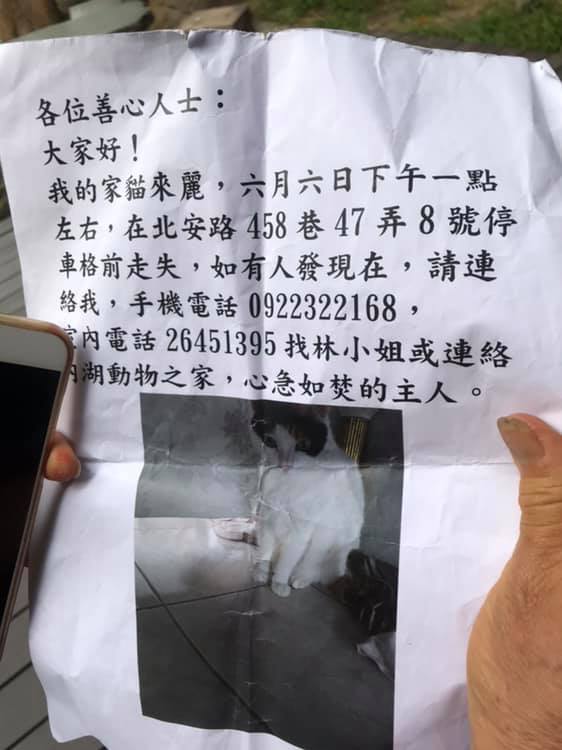 各位善心人士：
大家好！
我的家貓來麗，六月六日下午一點
左右，在北安路 458 巷 47 弄 8 號停
車格前走失，如有人發現在，請連
絡我，手機電話 0922322168，
室內電話 26451395 找林小姐或連絡
內湖動物之家，心急如焚的主人。